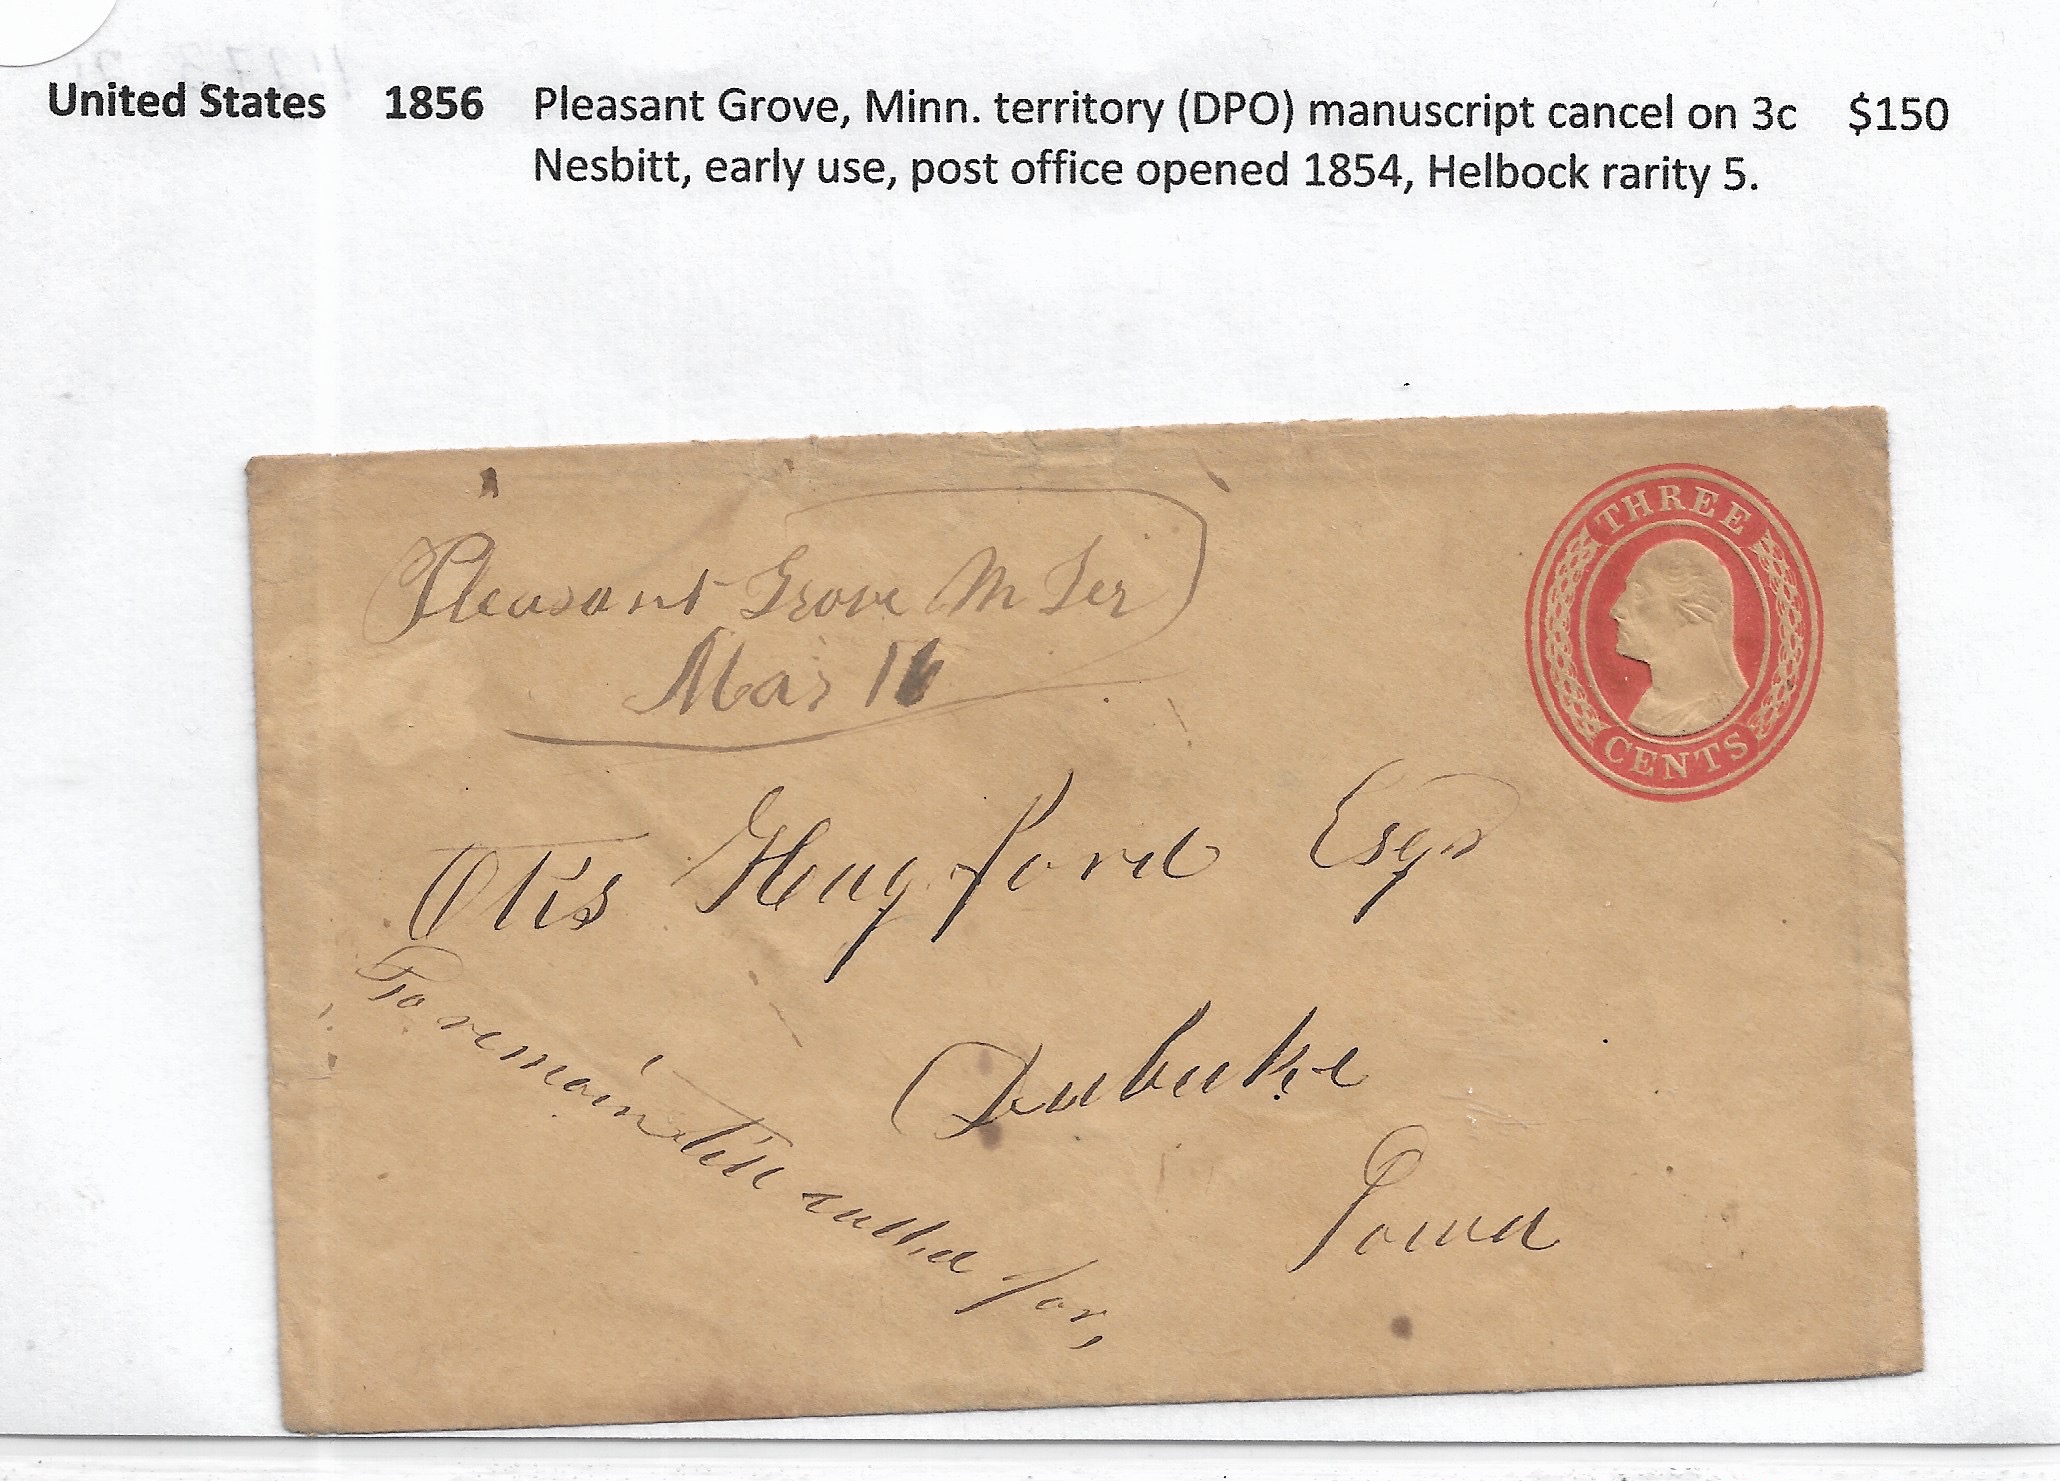 United States 1856 Pleasant Grove, Minn. territory (DPO) manuscript cancel on 3c $150
Nesbitt, early use, post office opened 1854, Helbock rarity 5.
THREE
CENTS
Pleasant Grove M Ter
Mar 16
Otis Hugford Esqr
Dubuke
Iowa
To remain till called for,